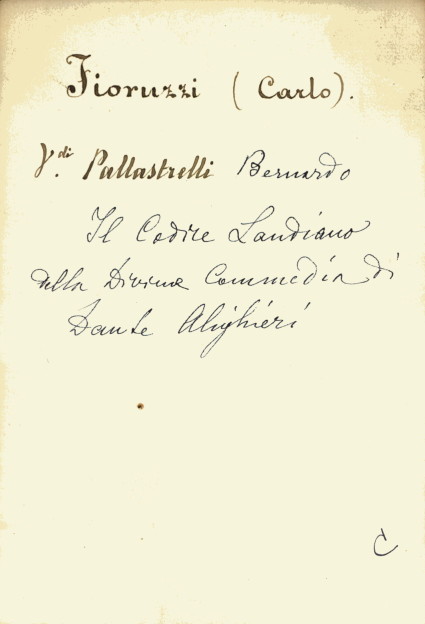 Fioruzzi (Carlo).
V.di Pallastrelli Bernardo
Il Codice Landiano
della Divina Commedia di
Dante Alighieri
C